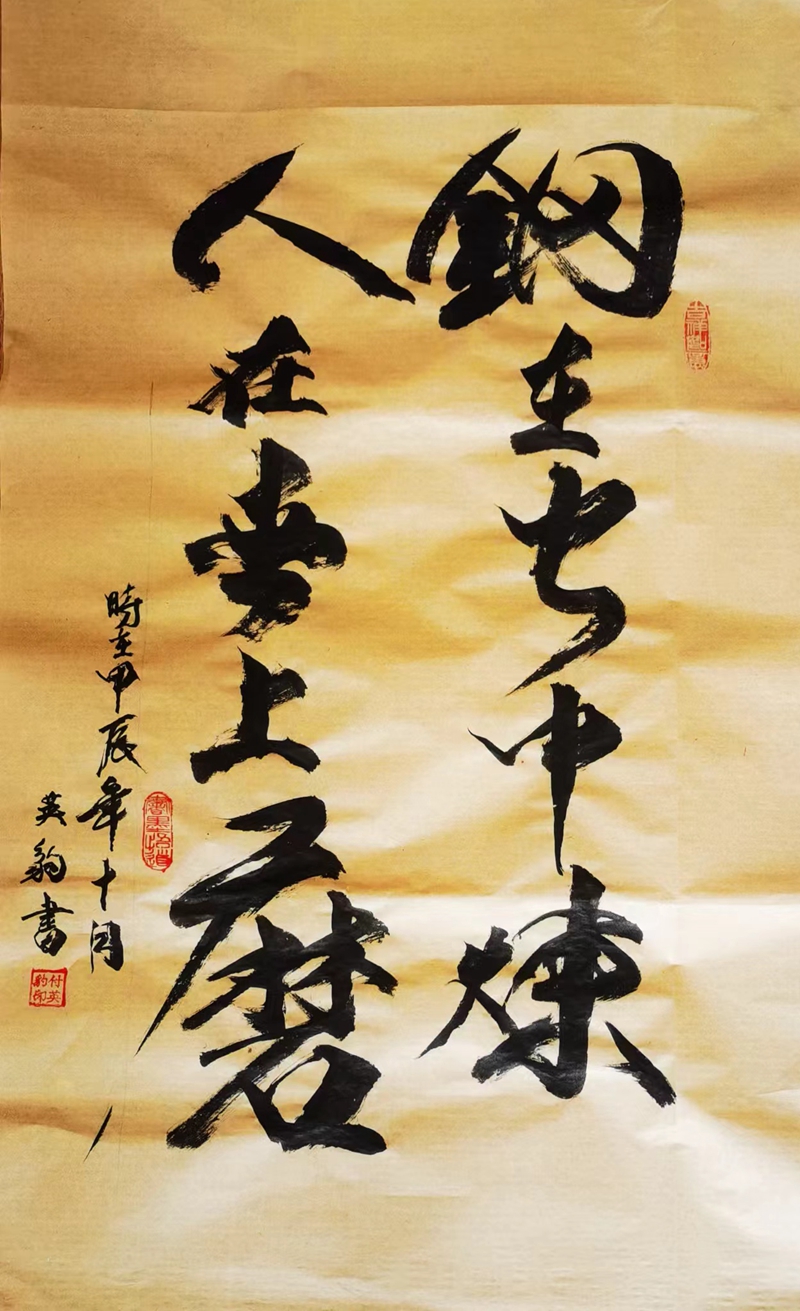 鋼在火中煉
人在世上磨
時在甲辰年十月
英豹書
付英豹印